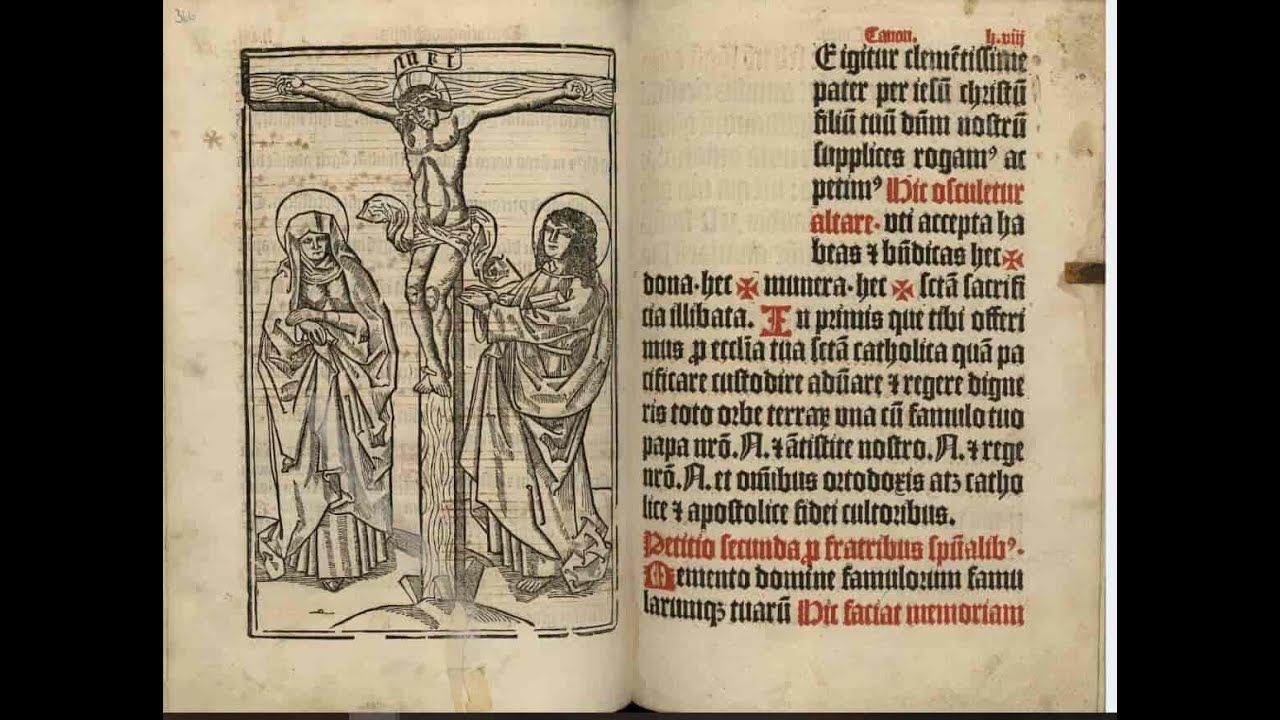 366
INRI
Canon. h.viij
E igitur clemētissime
pater per iesū christū
filiū tuū dn̄m nostrū
supplices rogamꝰ ac
petimꝰ Hic osculetur
altare. vti accepta ha
beas ⁊ bn̄dicas hec ✠
dona. hec ✠ munera. hec ✠ sctā sacrifi
cia illibata. In primis que tibi offeri
mus ꝓ eccl̄ia tua sctā catholica quā pa
cificare custodire adūare ⁊ regere digne
ris toto orbe terraꝝ vna cū famulo tuo
papa nr̄o. N. ⁊ ātistite nostro. N. ⁊ rege
nr̄o. N. et om̄ibus ortodoxis atꝫ catho
lice ⁊ apostolice fidei cultoribus.
Petitio secunda ꝓ fratribus spūalibꝰ.
Memento domine famulorum famu
larumqꝫ tuarū Hic faciat memoriam